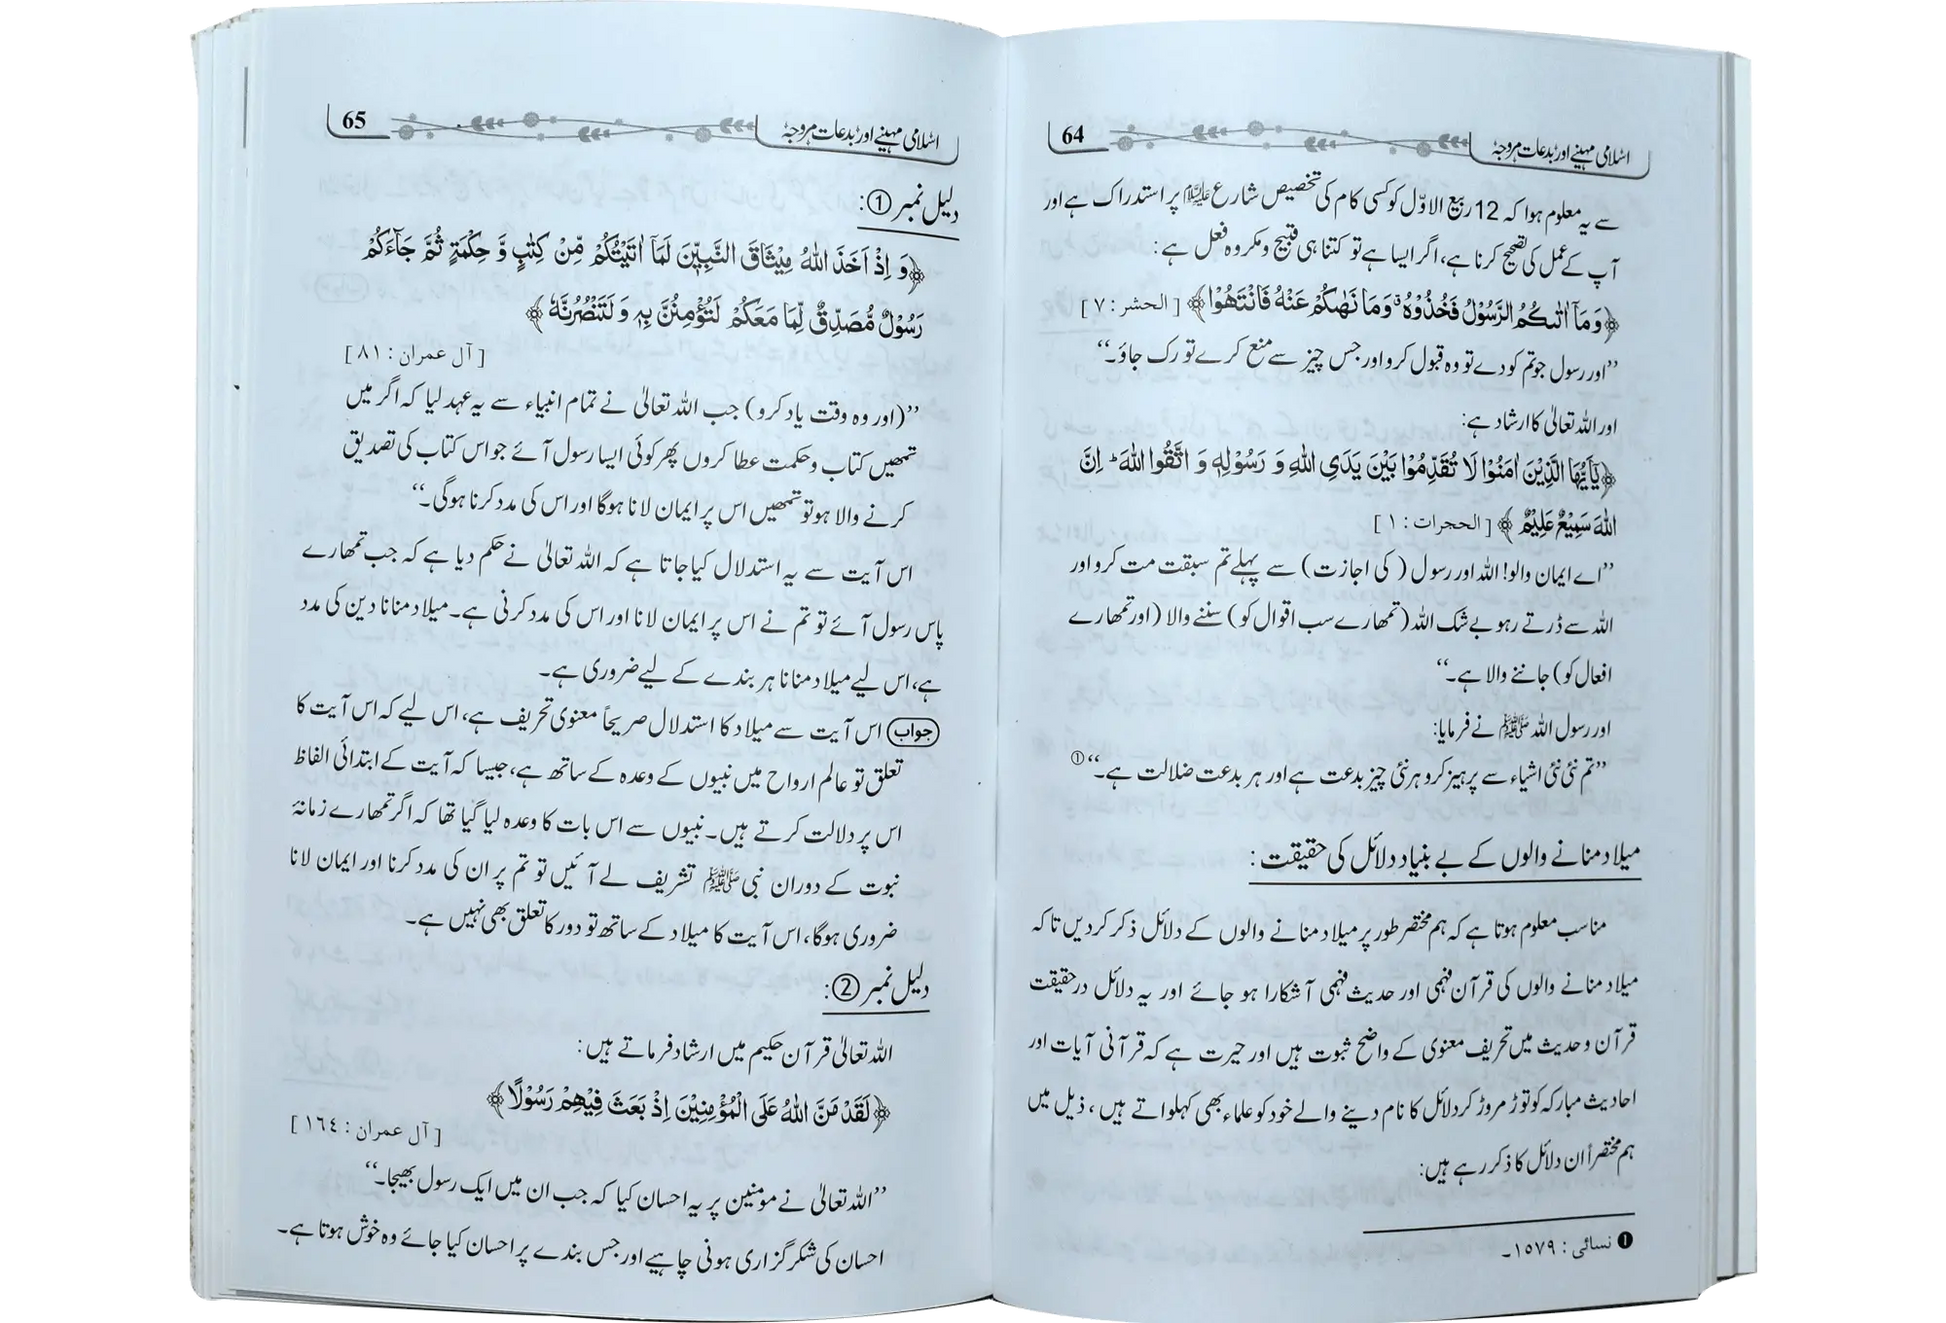 اسلامی مہینے اور بدعات مروجہ
64
سے یہ معلوم ہوا کہ 12 ربیع الاوّل کو کسی کام کی تخصیص شارع علیہ السلام پر استدراک ہے اور
آپ کے عمل کی تصحیح کرنا ہے، اگر ایسا ہے تو کتنا ہی قبیح و مکروہ فعل ہے:
﴿وَمَآ اٰتٰىكُمُ الرَّسُوْلُ فَخُذُوْهُ ۚ وَمَا نَهٰىكُمْ عَنْهُ فَانْتَهُوْا﴾ [الحشر: ٧]
”اور رسول جو تم کو دے تو وہ قبول کرو اور جس چیز سے منع کرے تو رک جاؤ۔“
اور اللہ تعالیٰ کا ارشاد ہے:
﴿يٰٓاَيُّهَا الَّذِيْنَ اٰمَنُوْا لَا تُقَدِّمُوْا بَيْنَ يَدَيِ اللّٰهِ وَ رَسُوْلِهٖ وَ اتَّقُوا اللّٰهَ ؕ اِنَّ
اللّٰهَ سَمِيْعٌ عَلِيْمٌ﴾ [الحجرات: ١]
”اے ایمان والو! اللہ اور رسول (کی اجازت) سے پہلے تم سبقت مت کرو اور
اللہ سے ڈرتے رہو بے شک اللہ (تمھارے سب اقوال کو) سننے والا (اور تمھارے
افعال کو) جاننے والا ہے۔“
اور رسول اللہ ﷺ نے فرمایا:
”تم نئی نئی اشیاء سے پرہیز کرو ہر نئی چیز بدعت ہے اور ہر بدعت ضلالت ہے۔“①
میلاد منانے والوں کے بے بنیاد دلائل کی حقیقت:
مناسب معلوم ہوتا ہے کہ ہم مختصر طور پر میلاد منانے والوں کے دلائل ذکر کر دیں تاکہ
میلاد منانے والوں کی قرآن فہمی اور حدیث فہمی آشکارا ہو جائے اور یہ دلائل در حقیقت
قرآن و حدیث میں تحریف معنوی کے واضح ثبوت ہیں اور حیرت ہے کہ قرآنی آیات اور
احادیث مبارکہ کو توڑ مروڑ کر دلائل کا نام دینے والے خود کو علماء بھی کہلواتے ہیں، ذیل میں
ہم مختصراً ان دلائل کا ذکر رہے ہیں:
❶ نسائی: ١٥٧٩۔
اسلامی مہینے اور بدعات مروجہ
65
دلیل نمبر ①:
﴿وَ اِذْ اَخَذَ اللّٰهُ مِيْثَاقَ النَّبِيّٖنَ لَمَآ اٰتَيْتُكُمْ مِّنْ كِتٰبٍ وَّ حِكْمَةٍ ثُمَّ جَآءَكُمْ
رَسُوْلٌ مُّصَدِّقٌ لِّمَا مَعَكُمْ لَتُؤْمِنُنَّ بِهٖ وَ لَتَنْصُرُنَّهٗ﴾
[آل عمران: ٨١]
”(اور وہ وقت یاد کرو) جب اللہ تعالیٰ نے تمام انبیاء سے یہ عہد لیا کہ اگر میں
تمھیں کتاب و حکمت عطا کروں پھر کوئی ایسا رسول آئے جو اس کتاب کی تصدیق
کرنے والا ہو تو تمھیں اس پر ایمان لانا ہوگا اور اس کی مدد کرنا ہوگی۔“
اس آیت سے یہ استدلال کیا جاتا ہے کہ اللہ تعالیٰ نے حکم دیا ہے کہ جب تمھارے
پاس رسول آئے تو تم نے اس پر ایمان لانا اور اس کی مدد کرنی ہے۔ میلاد منانا دین کی مدد
ہے، اس لیے میلاد منانا ہر بندے کے لیے ضروری ہے۔
جواب اس آیت سے میلاد کا استدلال صریحاً معنوی تحریف ہے، اس لیے کہ اس آیت کا
تعلق تو عالم ارواح میں نبیوں کے وعدہ کے ساتھ ہے، جیسا کہ آیت کے ابتدائی الفاظ
اس پر دلالت کرتے ہیں۔ نبیوں سے اس بات کا وعدہ لیا گیا تھا کہ اگر تمھارے زمانۂ
نبوت کے دوران نبی ﷺ تشریف لے آئیں تو تم پر ان کی مدد کرنا اور ایمان لانا
ضروری ہوگا، اس آیت کا میلاد کے ساتھ تو دور کا تعلق بھی نہیں ہے۔
دلیل نمبر ②:
اللہ تعالیٰ قرآن حکیم میں ارشاد فرماتے ہیں:
﴿لَقَدْ مَنَّ اللّٰهُ عَلَى الْمُؤْمِنِيْنَ اِذْ بَعَثَ فِيْهِمْ رَسُوْلًا﴾
[آل عمران: ١٦٤]
”اللہ تعالیٰ نے مومنین پر یہ احسان کیا کہ جب ان میں ایک رسول بھیجا۔“
احسان کی شکر گزاری ہونی چاہیے اور جس بندے پر احسان کیا جائے وہ خوش ہوتا ہے۔